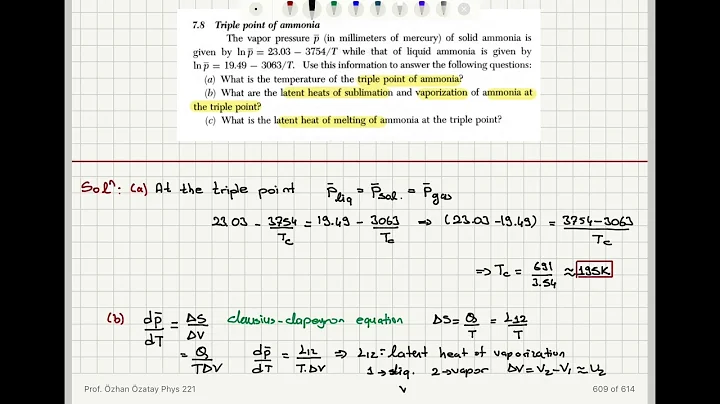 7.8 Triple point of ammonia
The vapor pressure p̄ (in millimeters of mercury) of solid ammonia is
given by ln p̄ = 23.03 − 3754/T while that of liquid ammonia is given by
ln p̄ = 19.49 − 3063/T. Use this information to answer the following questions:
(a) What is the temperature of the triple point of ammonia?
(b) What are the latent heats of sublimation and vaporization of ammonia at
the triple point?
(c) What is the latent heat of melting of ammonia at the triple point?
Solⁿ: (a) At the triple point p̄liq = p̄sol. = p̄gas
23.03 − 3754/Tc = 19.49 − 3063/Tc ⇒ (23.03 − 19.49) = 3754−3063/Tc
⇒ Tc = 691/3.54 ≈ 195K
(b) dp̄/dT = ΔS/ΔV clausius-clapeyron equation ΔS = Q/T = L12/T
= Q/TΔV dp̄/dT = L12/T.ΔV ⇒ L12 = latent heat of vaporization
1→liq. 2→vapor ΔV = V2−V1 ≈ V2
Prof. Özhan Özatay Phys 221 609 of 614